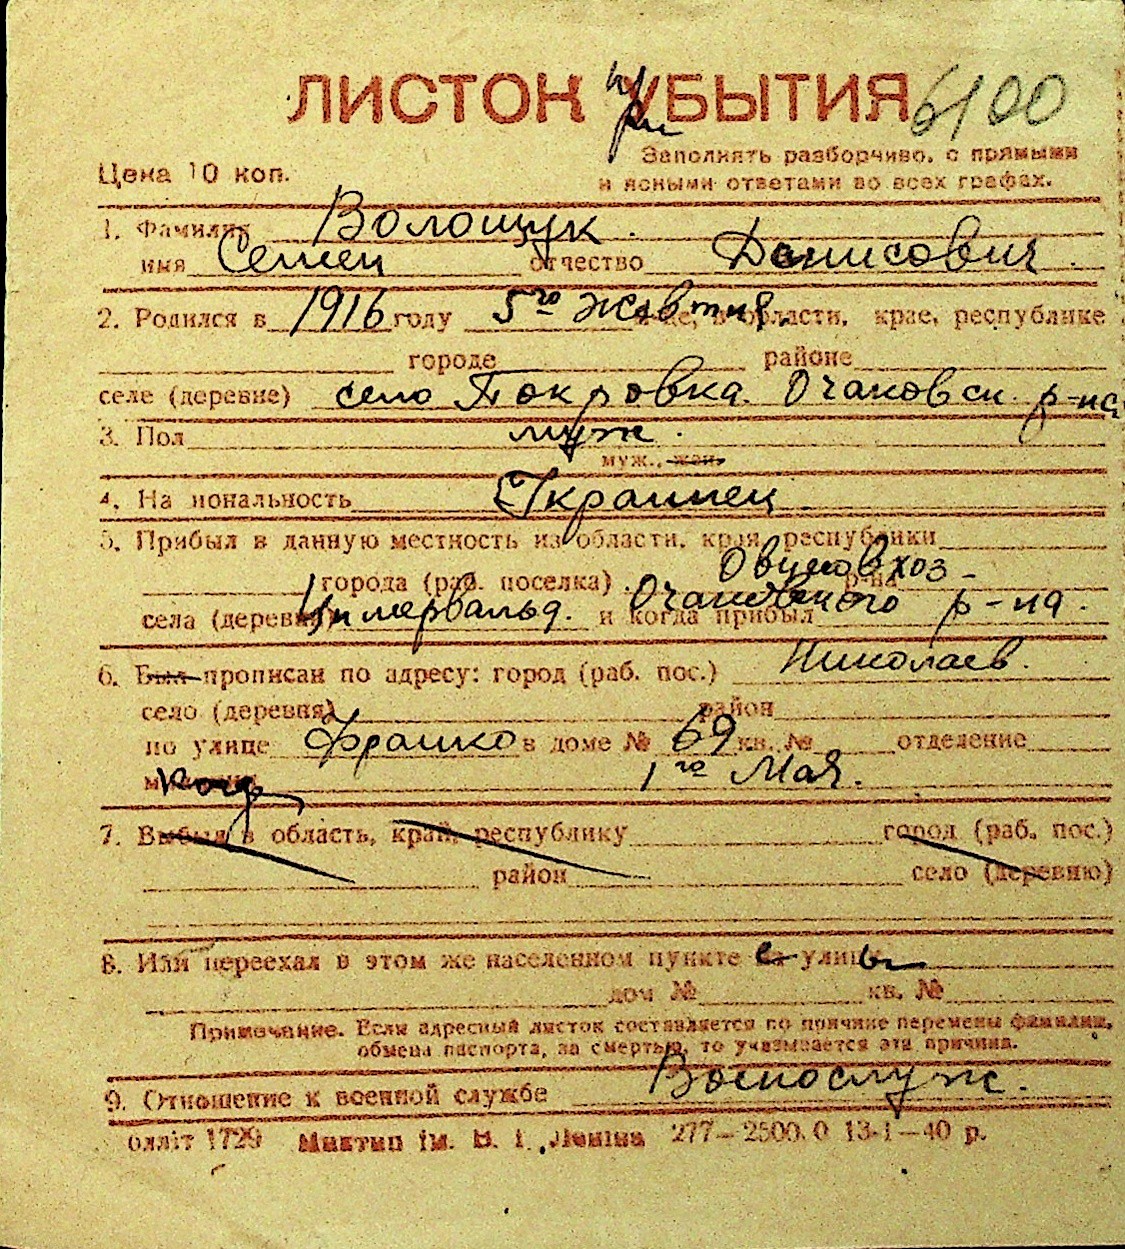 ЛИСТОК УБЫТИЯ 6100
при
Цена 10 коп.
Заполнять разборчиво, с прямыми
и ясными ответами во всех графах.
1. Фамилия Волощук.
имя Семен отчество Денисович.
2. Родился в 1916 году 5го жовтня, области, крае, республике
городе районе
селе (деревне) село Покровка. Очаковск. р-на
3. Пол муж.
муж., жен.
4. На иональность Украинец
5. Прибыл в данную местность из области, края, республики
города (раб. поселка) р-на Овцесовхоз-
села (деревни) Цимервальд. и когда прибыл Очаковского р-на.
6. Был прописан по адресу: город (раб. пос.) Николаев.
село (деревня) район
по улице Франко в доме № 69 кв. № отделение
1го Мая.
7. Выбыл в область, край, республику город (раб. пос.)
район село (деревню)
8. Или переехал в этом же населенном пункте с улицы
дом № кв. №
Примечание. Если адресный листок составляется по причине перемены фамилии,
обмена паспорта, за смертью, то указывается эта причина.
9. Отношение к военной службе Военослуж.
олліт 1729 Миктип ім. В. І. Леніна 277—2500.0 13-1—40 р.